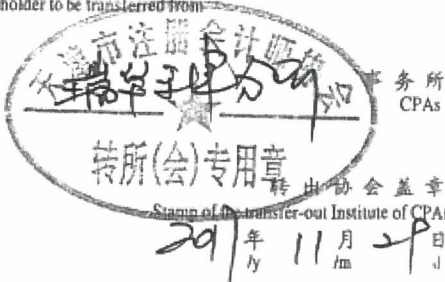 holder to be transferred from
天津市注册会计师协会
瑞华天津分所
事务所
CPAs
转所(会)专用章
转出协会盖章
Stamp of the transfer-out Institute of CPAs
2017年11月29日
/y /m /d